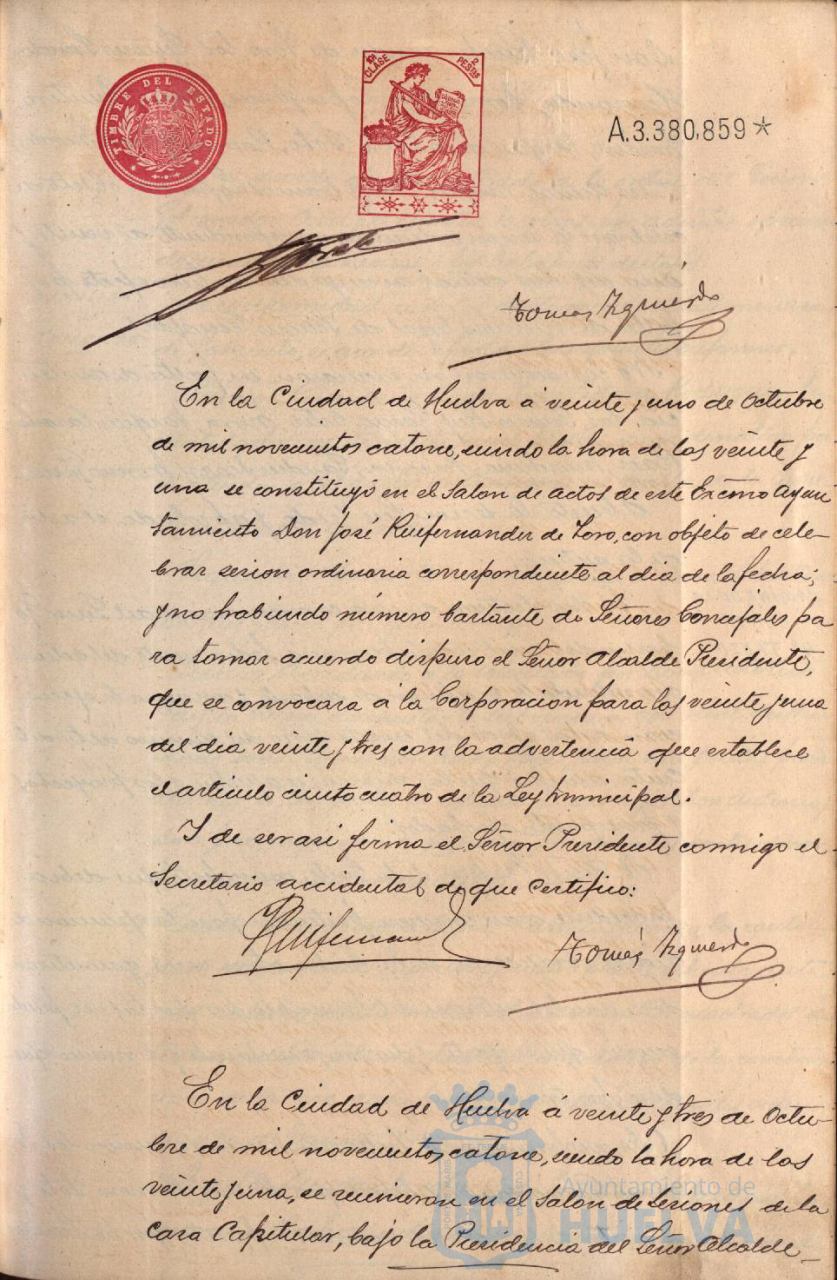 TIMBRE DEL ESTADO
10ª CLASE 2 PESETAS
A.3.380.859*
Tomás Izquierdo
En la Ciudad de Huelva á veinte y uno de Octubre
de mil novecientos catorce, siendo la hora de las veinte y
una se constituyó en el Salon de actos de este Excmo Ayun
tamiento Don José Ruifernandez de Toro, con objeto de cele-
brar sesion ordinaria correspondiente al dia de la fecha;
y no habiendo número bastante de Señores Concejales pa
ra tomar acuerdo dispuso el Señor Alcalde Presidente,
que se convocara á la Corporacion para las veinte y una
del dia veinte y tres con la advertencia que establece
el articulo ciento cuatro de la Ley Municipal.
Y de ser asi firma el Señor Presidente conmigo el
Secretario accidental de que certifico:
Ruifernandez
Tomás Izquierdo
En la Ciudad de Huelva á veinte y tres de Octu-
bre de mil novecientos catorce, siendo la hora de las
veinte y una, se reunieron en el Salon de Sesiones de la
Casa Capitular, bajo la Presidencia del Señor Alcalde-
Ayuntamiento de
HUELVA